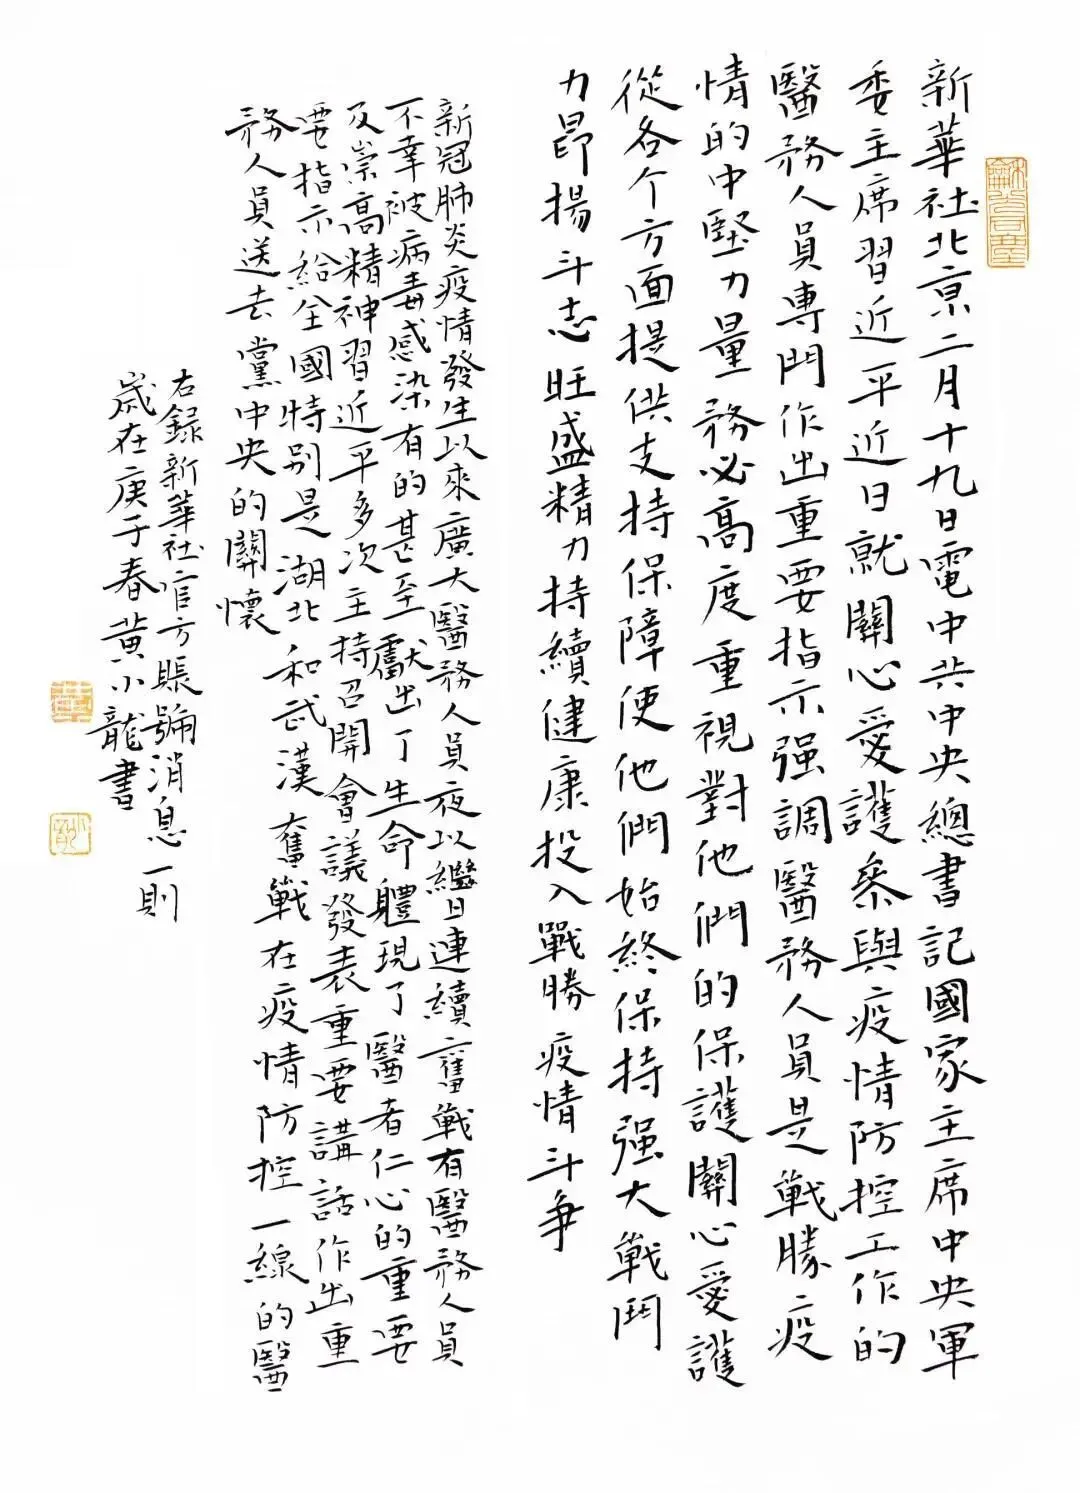 新華社北京二月十九日電中共中央總書記國家主席中央軍
委主席習近平近日就關心愛護參與疫情防控工作的
醫務人員專門作出重要指示强調醫務人員是戰勝疫
情的中堅力量務必高度重視對他們的保護關心愛護
從各个方面提供支持保障使他們始終保持强大戰鬥
力昂揚斗志旺盛精力持續健康投入戰勝疫情斗争
新冠肺炎疫情發生以來廣大醫務人員夜以繼日連續奮戰有醫務人員
不幸被病毒感染有的甚至獻出了生命體現了醫者仁心的重要
及崇高精神習近平多次主持召開會議發表重要講話作出重
要指示給全國特别是湖北和武漢奮戰在疫情防控一線的醫
務人員送去黨中央的關懷
右録新華社官方賬號消息一則
歲在庚子春黄小龍書